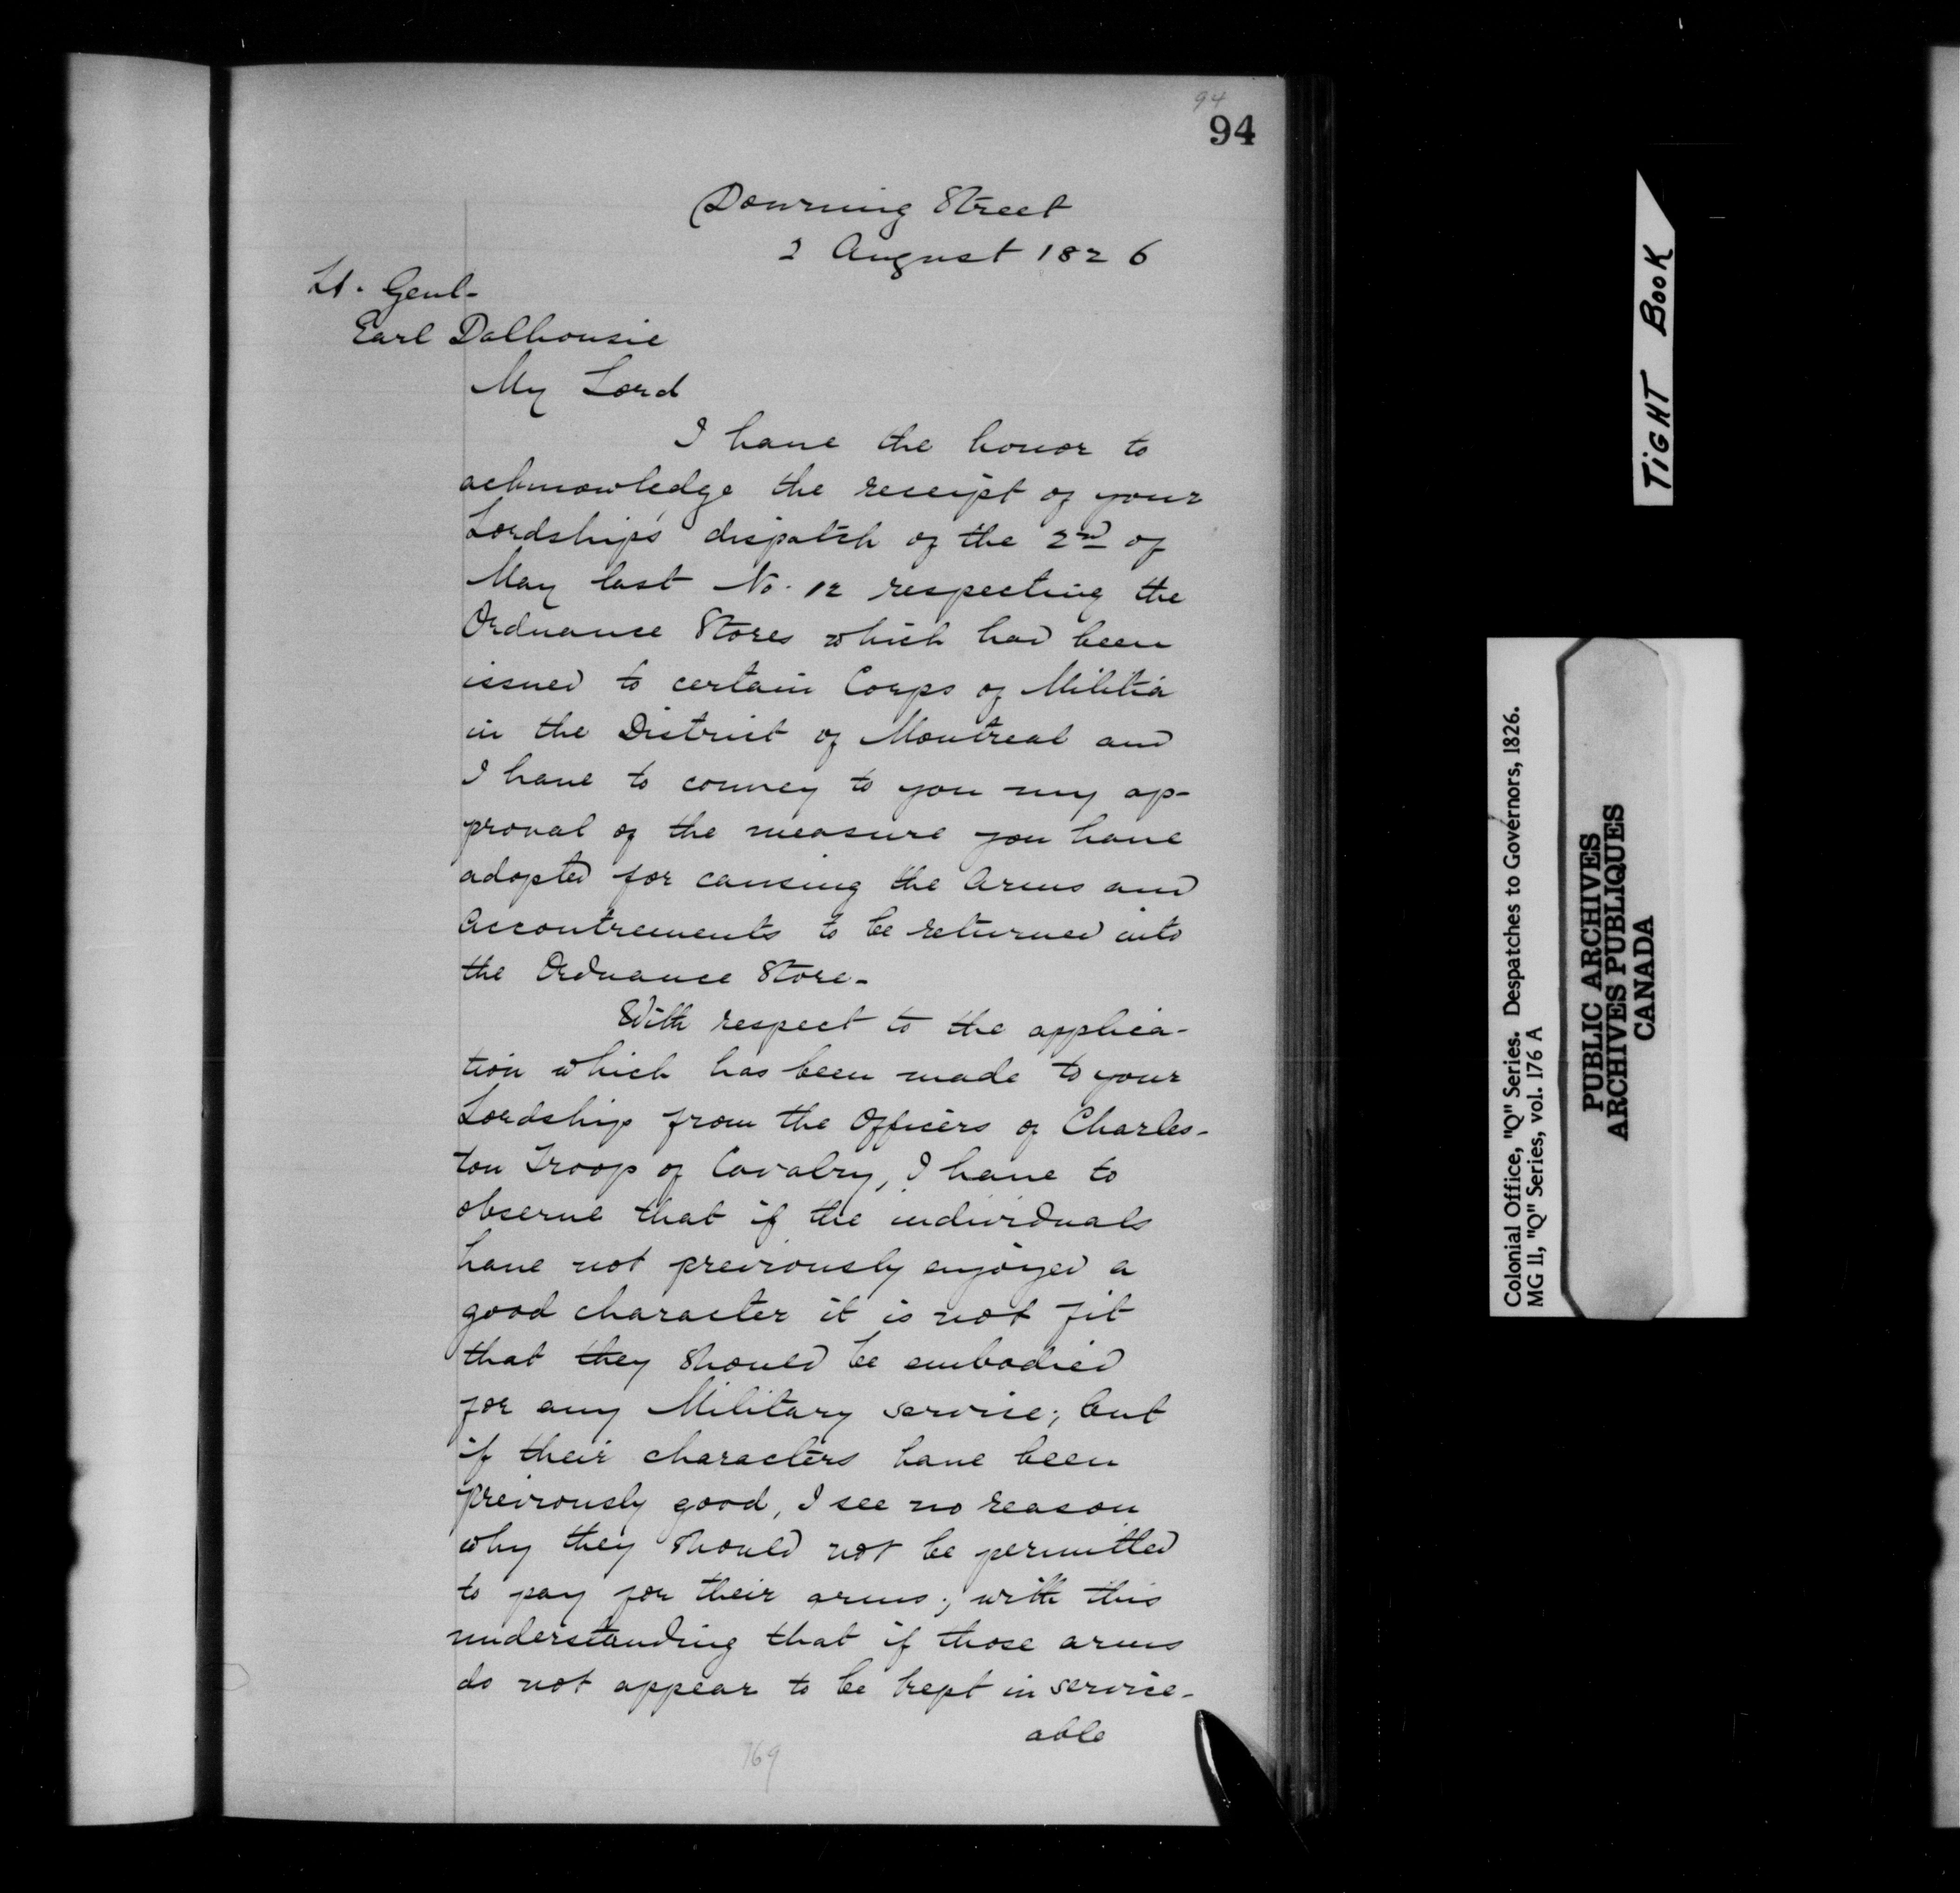 94
94
Downing Street
2 August 1826
Lt. Genl-
Earl Dalhousie
My Lord
I have the honor to
acknowledge the receipt of your
Lordship's dispatch of the 2nd of
May last No. 12 respecting the
Ordnance Stores which had been
issued to certain Corps of Militia
in the District of Montreal and
I have to convey to you my ap-
proval of the measure you have
adopted for causing the Arms and
Accoutrements to be returned into
the Ordnance Store-
With respect to the applica-
tion which has been made to your
Lordship from the Officers of Charles-
ton Troop of Cavalry, I have to
observe that if the individuals
have not previously enjoyed a
good character it is not fit
that they should be embodied
for any Military service; but
if their characters have been
previously good, I see no reason
why they should not be permitted
to pay for their arms; with this
understanding that if those arms
do not appear to be kept in service-
able
169
TIGHT BOOK
Colonial Office, "Q" Series. Despatches to Governors, 1826.
MG 11, "Q" Series, vol. 176 A
PUBLIC ARCHIVES
ARCHIVES PUBLIQUES
CANADA